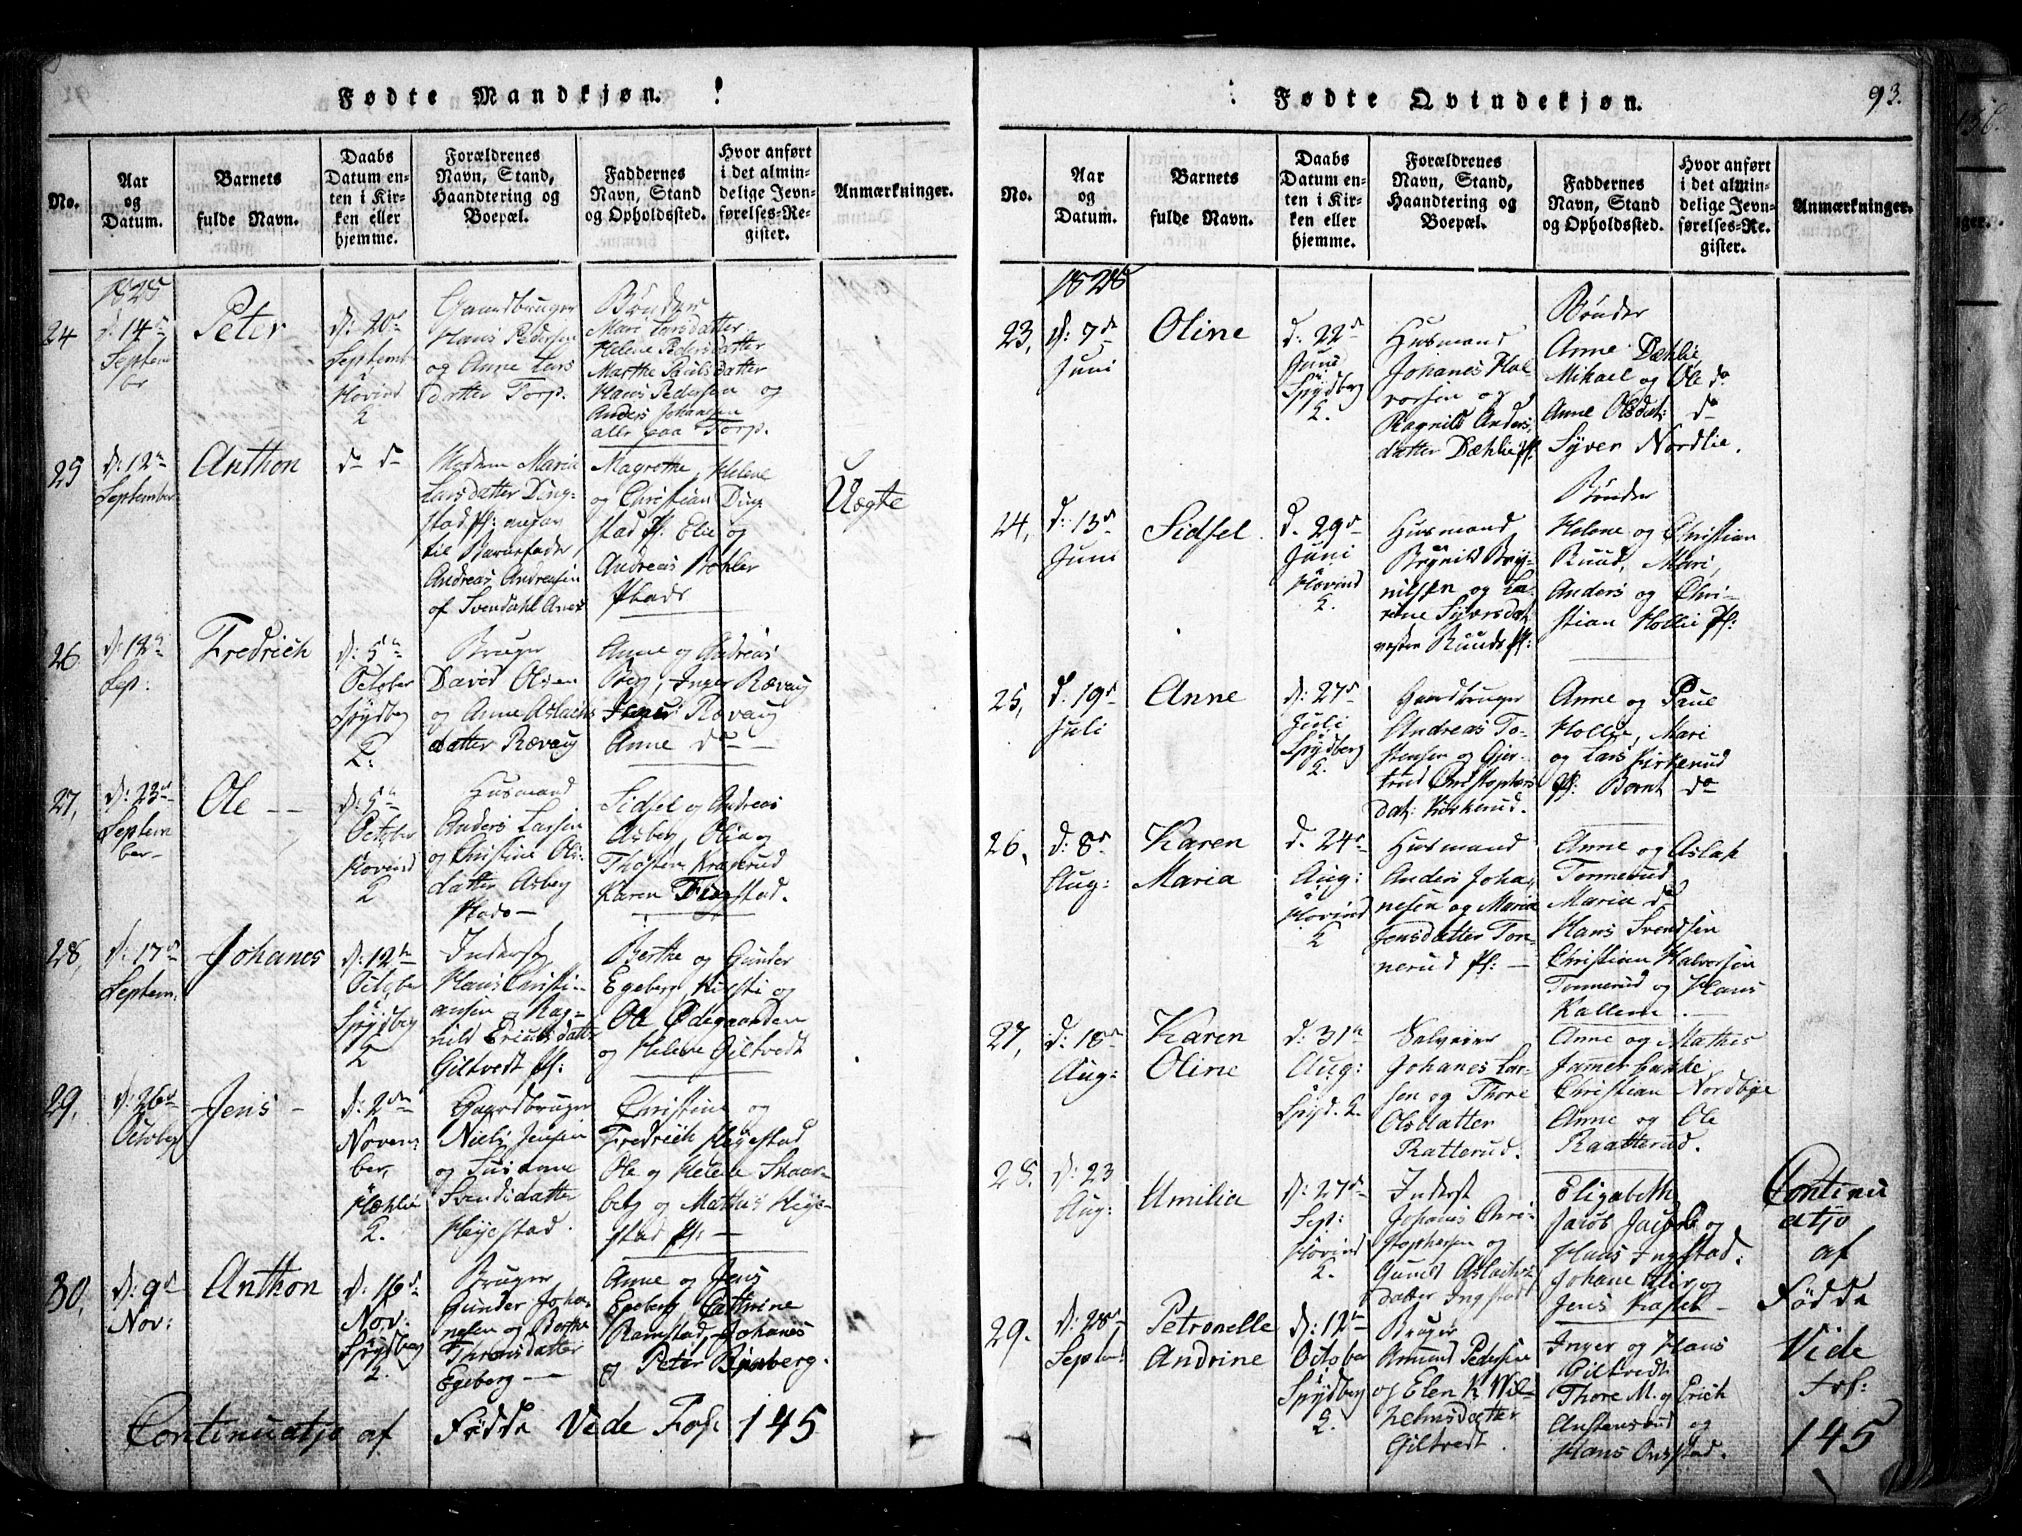 Fødte Mandkjøn.
No.
Aar
og
Datum.
Barnets
fulde Navn.
Daabs
Datum en-
ten i Kir-
ken eller
hjemme.
Forældrenes
Navn, Stand,
Haandtering og
Boepæl.
Faddernes
Navn, Stand
og Opholdssted.
Hvor anført
i det almin-
delige Jevn-
førelses-Re-
gister.
Anmærkninger.
1825
24
d: 14de
Septem
ber
Peter
d: 20de
Septemb
Hovind
2
Gaardbruger
Hans Pedersen
og Anne Lars
datter Torp.
Bønder
Mari Larsdatter
Helene Pedersdatter
Marthe Paulsdatter
Hans Pedersen og
Anders Johansen
alle paa Torp.
25
d: 12te
September
Anthon
do do
Modern Maria
Larsdatter Ding-
stad Pf: angav
til Barnefader
Andreas Andreasen
af Svendahl
Magrethe, Helene
og Christian Ding
stad Pf. Elie og
Andreas Bøhler
Uægte
26
d: 18de
Sep:
Fredrich
d: 5te
October
Spydbg
2:
Bruger
David Olsen
og Anne Aslachs
datter Rævaug
Anne og Andreas
Berg, Inger Rævaug
Rævaug
Anne do
27,
d: 23de
Septem
ber
Ole
d: 5te
October
Hovind
2
Husmand
Anders Larsen
og Christine Ols
datter Asberg
Sidsel og Andreas
Asberg, Olia og
Karen Fingstad.
28,
d: 17de
Septem:
Johanes
d: 12te
October
Spydberg
2
Inderst
Hans Christi-
ansen og Rag-
nild Erichsdatter
Giltvedt Pf:
Berthe og Gunder
Egeberg, Kirsti og
Ole Ødegaarden
og Helene Giltvedt
29,
d: 26de
October
Jens
d: 2den
Novem
ber,
2.
Gaardbruger
Niels Jensen
og Susanne
Svendsdatter
Heyestad.
Christine og
Fredrich Heyestad
Ole og Helene Skaar-
berg og Mathis Heye-
stad Pf:
30,
d: 9de
Nov:
Anthon
d: 16de
Nov:
Spydberg
2.
Bruger
Gunder Joha-
nesen og Berthe
Thoresdatter
Egeberg
Anne og Jens
Egeberg Cathrine
Ramstad, Johanes
og Peter Bjønberg.
Continuatjo af Fødde Vide Fol: 145
Fødte Qvindekjøn.
93.
No.
Aar
og
Datum.
Barnets
fulde Navn.
Daabs
Datum en-
ten i Kir-
ken eller
hjemme.
Forældrenes
Navn, Stand,
Haandtering og
Boepæl.
Faddernes
Navn, Stand
og Opholdssted.
Hvor anført
i det almin-
delige Jevn-
førelses-Re-
gister.
Anmærkninger.
1825
23,
d: 7de
Juni
Oline
d. 22de
Juni
Spydberg
2.
Husmand
Johanes Hal-
vorsen og
Ragnild Anders
datter Dæhlie Pf:
Bønder
Anne Dæhlie,
Mikael og Ole do
Anne Olsdat: do
Syver Nordlie.
24,
d: 13de
Juni
Sidsel
d. 29de
Juni
Hovind
2.
Husmand
Brynild Bryn-
nilsen og La-
rine Syversdat
vestre Ruuds Pf:
Bønder
Helene og Christian
Ruud, Mari,
Anders og Chri-
stian Hollie Pf:
25,
d: 19de
Juli
Anne
d: 27de
Juli
Spydberg
2.
Gaardbruger
Andreas To-
stensen og Gjer-
trud Christophers
dat: Kirkerud.
Anne og Paul
Hollie, Mari
og Lars Kirkerud
Pf: Bernt do
26,
d: 8de
Aug:
Karen
Maria
d. 24de
Aug:
Hovind
2
Husmand
Anders Joha-
nesen og Maria
Jensdatter Ton-
nerud Pf:
Anne og Aslak
Tonnerud
Maria do
Hans Svendsen
Christian Halvorsen
Tonnerud og Hans
Kallem
27,
d: 18de
Aug:
Karen
Oline
d: 31te
Aug:
Spyd. 2.
Selveier
Johanes Lar-
sen og Thore
Olsdatter
Ratterud.
Anne og Mathis
Christian Nordbye
Anne og Ole
Raatterud.
28.
d: 23
Aug:
Umilia
d: 27de
Sep:
Hovind
2.
Inderst
Johanes Chri-
stophersen og
Gunild Aslachs-
datter Ingstad
Elisabeth
Jacob og
Hans Ingstad.
Johane Elie og
Jens
29.
d: 28de
Septemb
Petronelle
Andrine
d: 12te
October
Spydberg
2.
Bruger
Amund Pedersen
og Elen K Wil-
helmsdatter
Giltvedt.
Inger og Hans
Giltvedt
Thore M. og Erich
Anstensrud og
Hans Onstad.
Continu
atjo
af
Fødde
Vide
Fol:
145